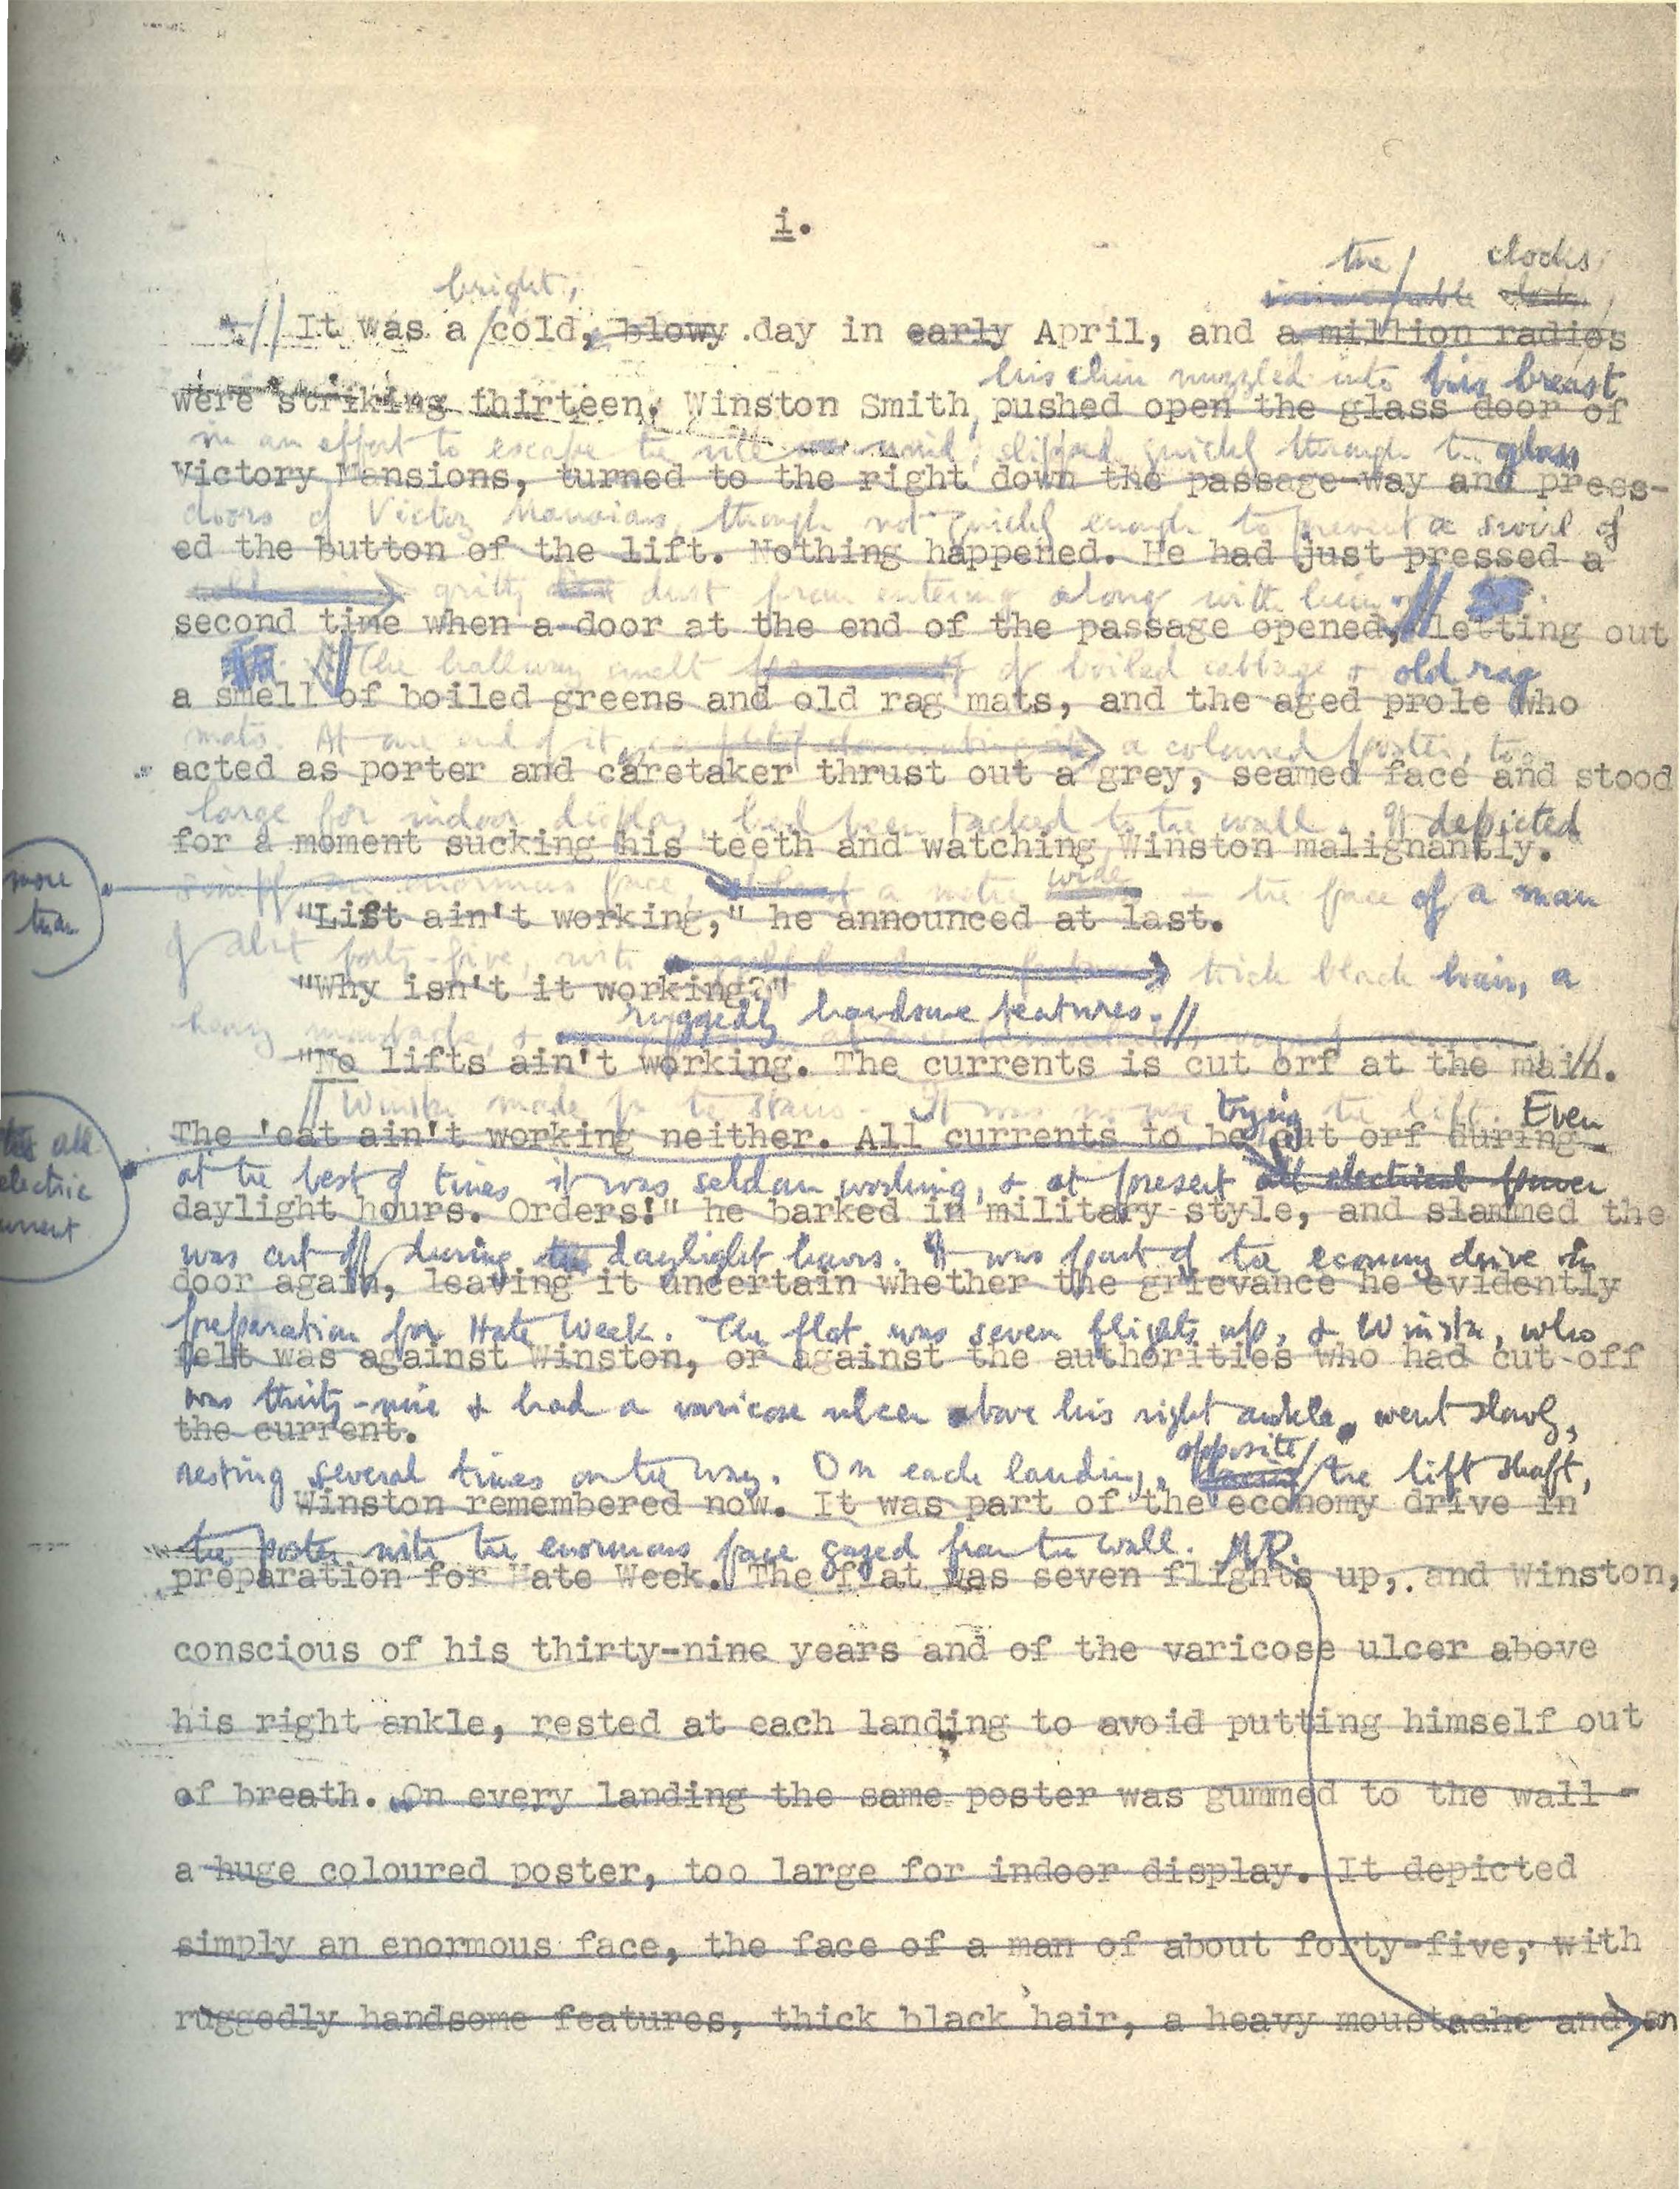 i.
the clocks
bright,
It was a cold, blowy day in early April, and a million radios
were striking thirteen. Winston Smith, pushed open the glass door of
his chin nuzzled into his breast
in an effort to escape the vile wind, slipped quickly through the glass
Victory Mansions, turned to the right down the passage-way and press-
doors of Victory Mansions, though not quickly enough to prevent a swirl of
ed the button of the lift. Nothing happened. He had just pressed a
gritty dust from entering along with him.
second time when a door at the end of the passage opened, letting out
The hallway smelt of boiled cabbage & old rag
a smell of boiled greens and old rag mats, and the aged prole who
mats. At one end of it a coloured poster, too
acted as porter and caretaker thrust out a grey, seamed face and stood
large for indoor display, had been tacked to the wall. It depicted
for a moment sucking his teeth and watching Winston malignantly.
more than
simply an enormous face, a metre wide - the face of a man
"Lift ain't working," he announced at last.
of about forty-five, with thick black hair, a
"Why isn't it working?"
heavy moustache, & ruggedly handsome features.
"No lifts ain't working. The currents is cut orf at the main.
Winston made for the stairs. It was no use trying the lift. Even
The 'eat ain't working neither. All currents to be cut orf during
all electric current
at the best of times it was seldom working, & at present all electrical power
daylight hours. Orders!" he barked in military style, and slammed the
was cut off during the daylight hours. It was part of the economy drive in
door again, leaving it uncertain whether the grievance he evidently
preparation for Hate Week. The flat was seven flights up, & Winston, who
felt was against Winston, or against the authorities who had cut off
was thirty-nine & had a varicose ulcer above his right ankle, went slowly,
the current.
resting several times on the way. On each landing, opposite the lift shaft,
Winston remembered now. It was part of the economy drive in
the poster with the enormous face gazed from the wall. NP.
preparation for Hate Week. The flat was seven flights up, and Winston,
conscious of his thirty-nine years and of the varicose ulcer above
his right ankle, rested at each landing to avoid putting himself out
of breath. On every landing the same poster was gummed to the wall -
a huge coloured poster, too large for indoor display. It depicted
simply an enormous face, the face of a man of about forty-five, with
ruggedly handsome features, thick black hair, a heavy moustache and an